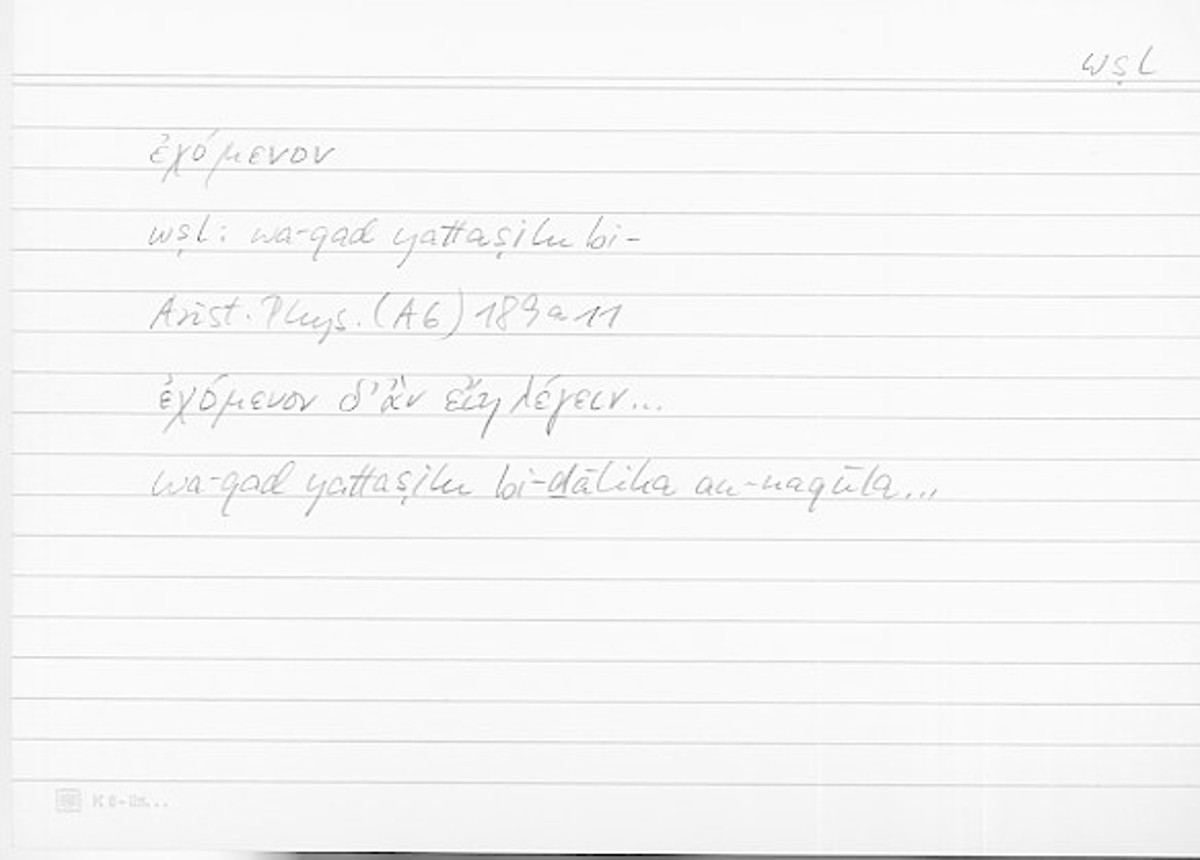 wṣl
ἐχόμενον
wṣl: wa-qad yattaṣilu bi-
Arist. Phys. (A6) 189a11
ἐχόμενον δ' ἂν εἴη λέγειν...
wa-qad yattaṣilu bi-ḏālika an-naqūla...